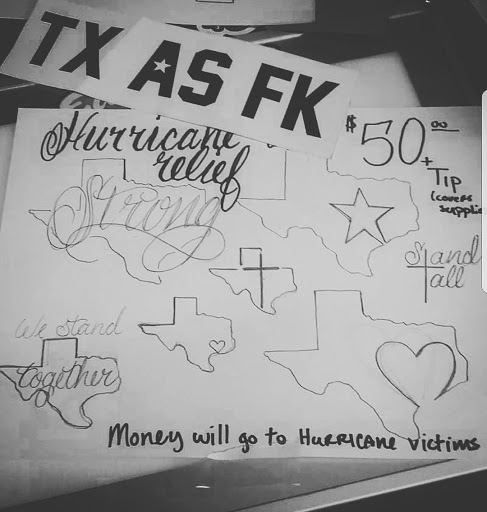 TX AS FK
Hurricane
relief
$50.00
+ Tip
(covers
Strong
Stand
tall
We stand
together
Money will go to HURRICANE victims